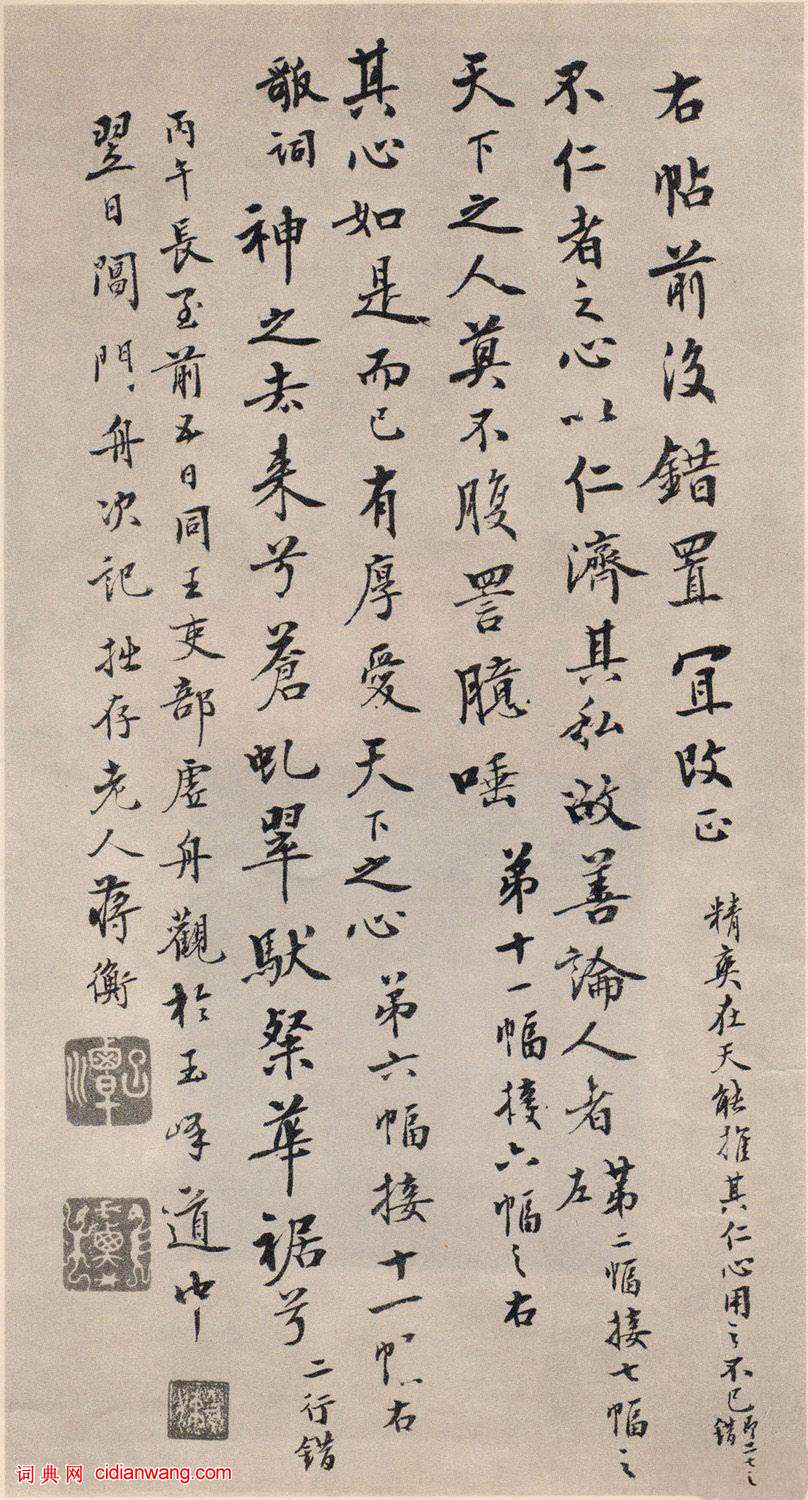 右帖前後錯置宜改正 精爽在天能推其仁心用之不已
不仁者之心以仁濟其私故善論人者 第二幅接七幅之左
天下之人莫不腹詈臆唾 第十一幅接六幅之右
其心如是而已有厚愛天下之心 第六幅接十一幅右
歌詞 神之去來兮蒼虬翠駇粲華裾兮 二行錯
丙午長至前五日同王吏部虛舟觀於玉峰道中
翌日閶門舟次記 拙存老人蔣衡
词典网 cidianwang.com